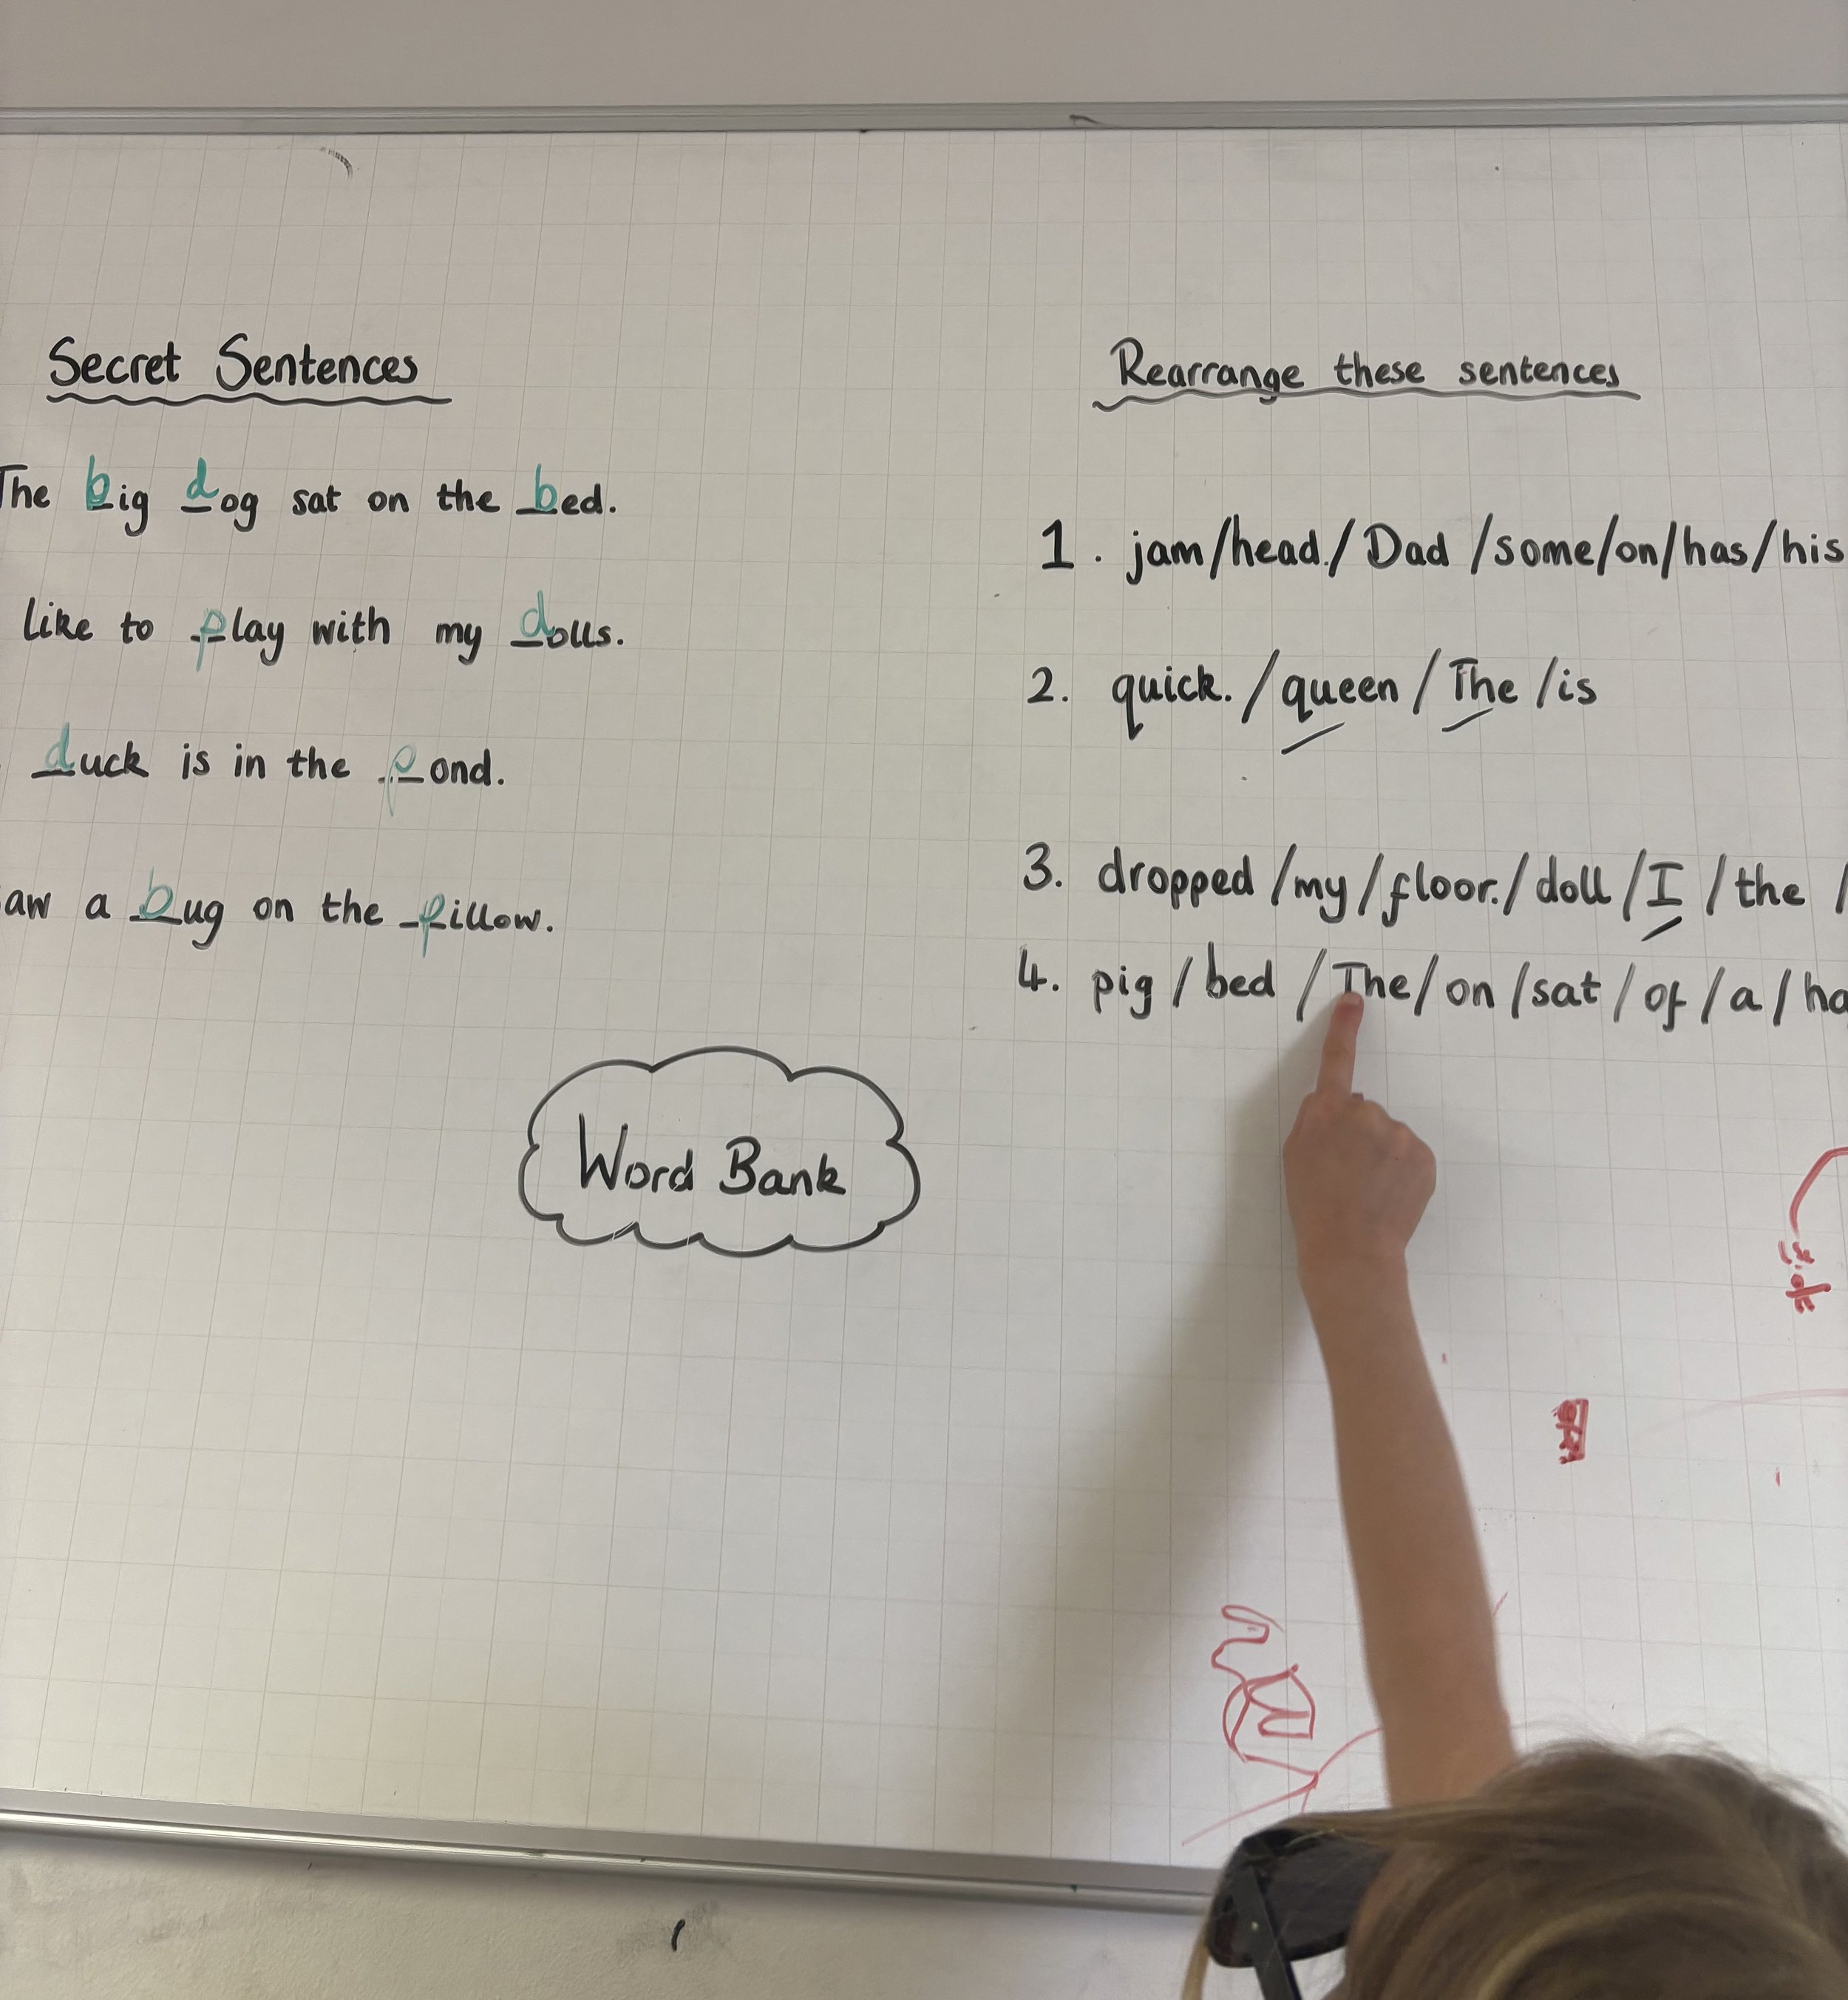 Secret Sentences
The big dog sat on the bed.
like to play with my dolls.
duck is in the pond.
aw a bug on the pillow.
Word Bank
Rearrange these sentences
1. jam/head./Dad/some/on/has/his
2. quick./queen/The/is
3. dropped/my/floor./doll/I/the/
4. pig/bed/The/on/sat/of/a/ha